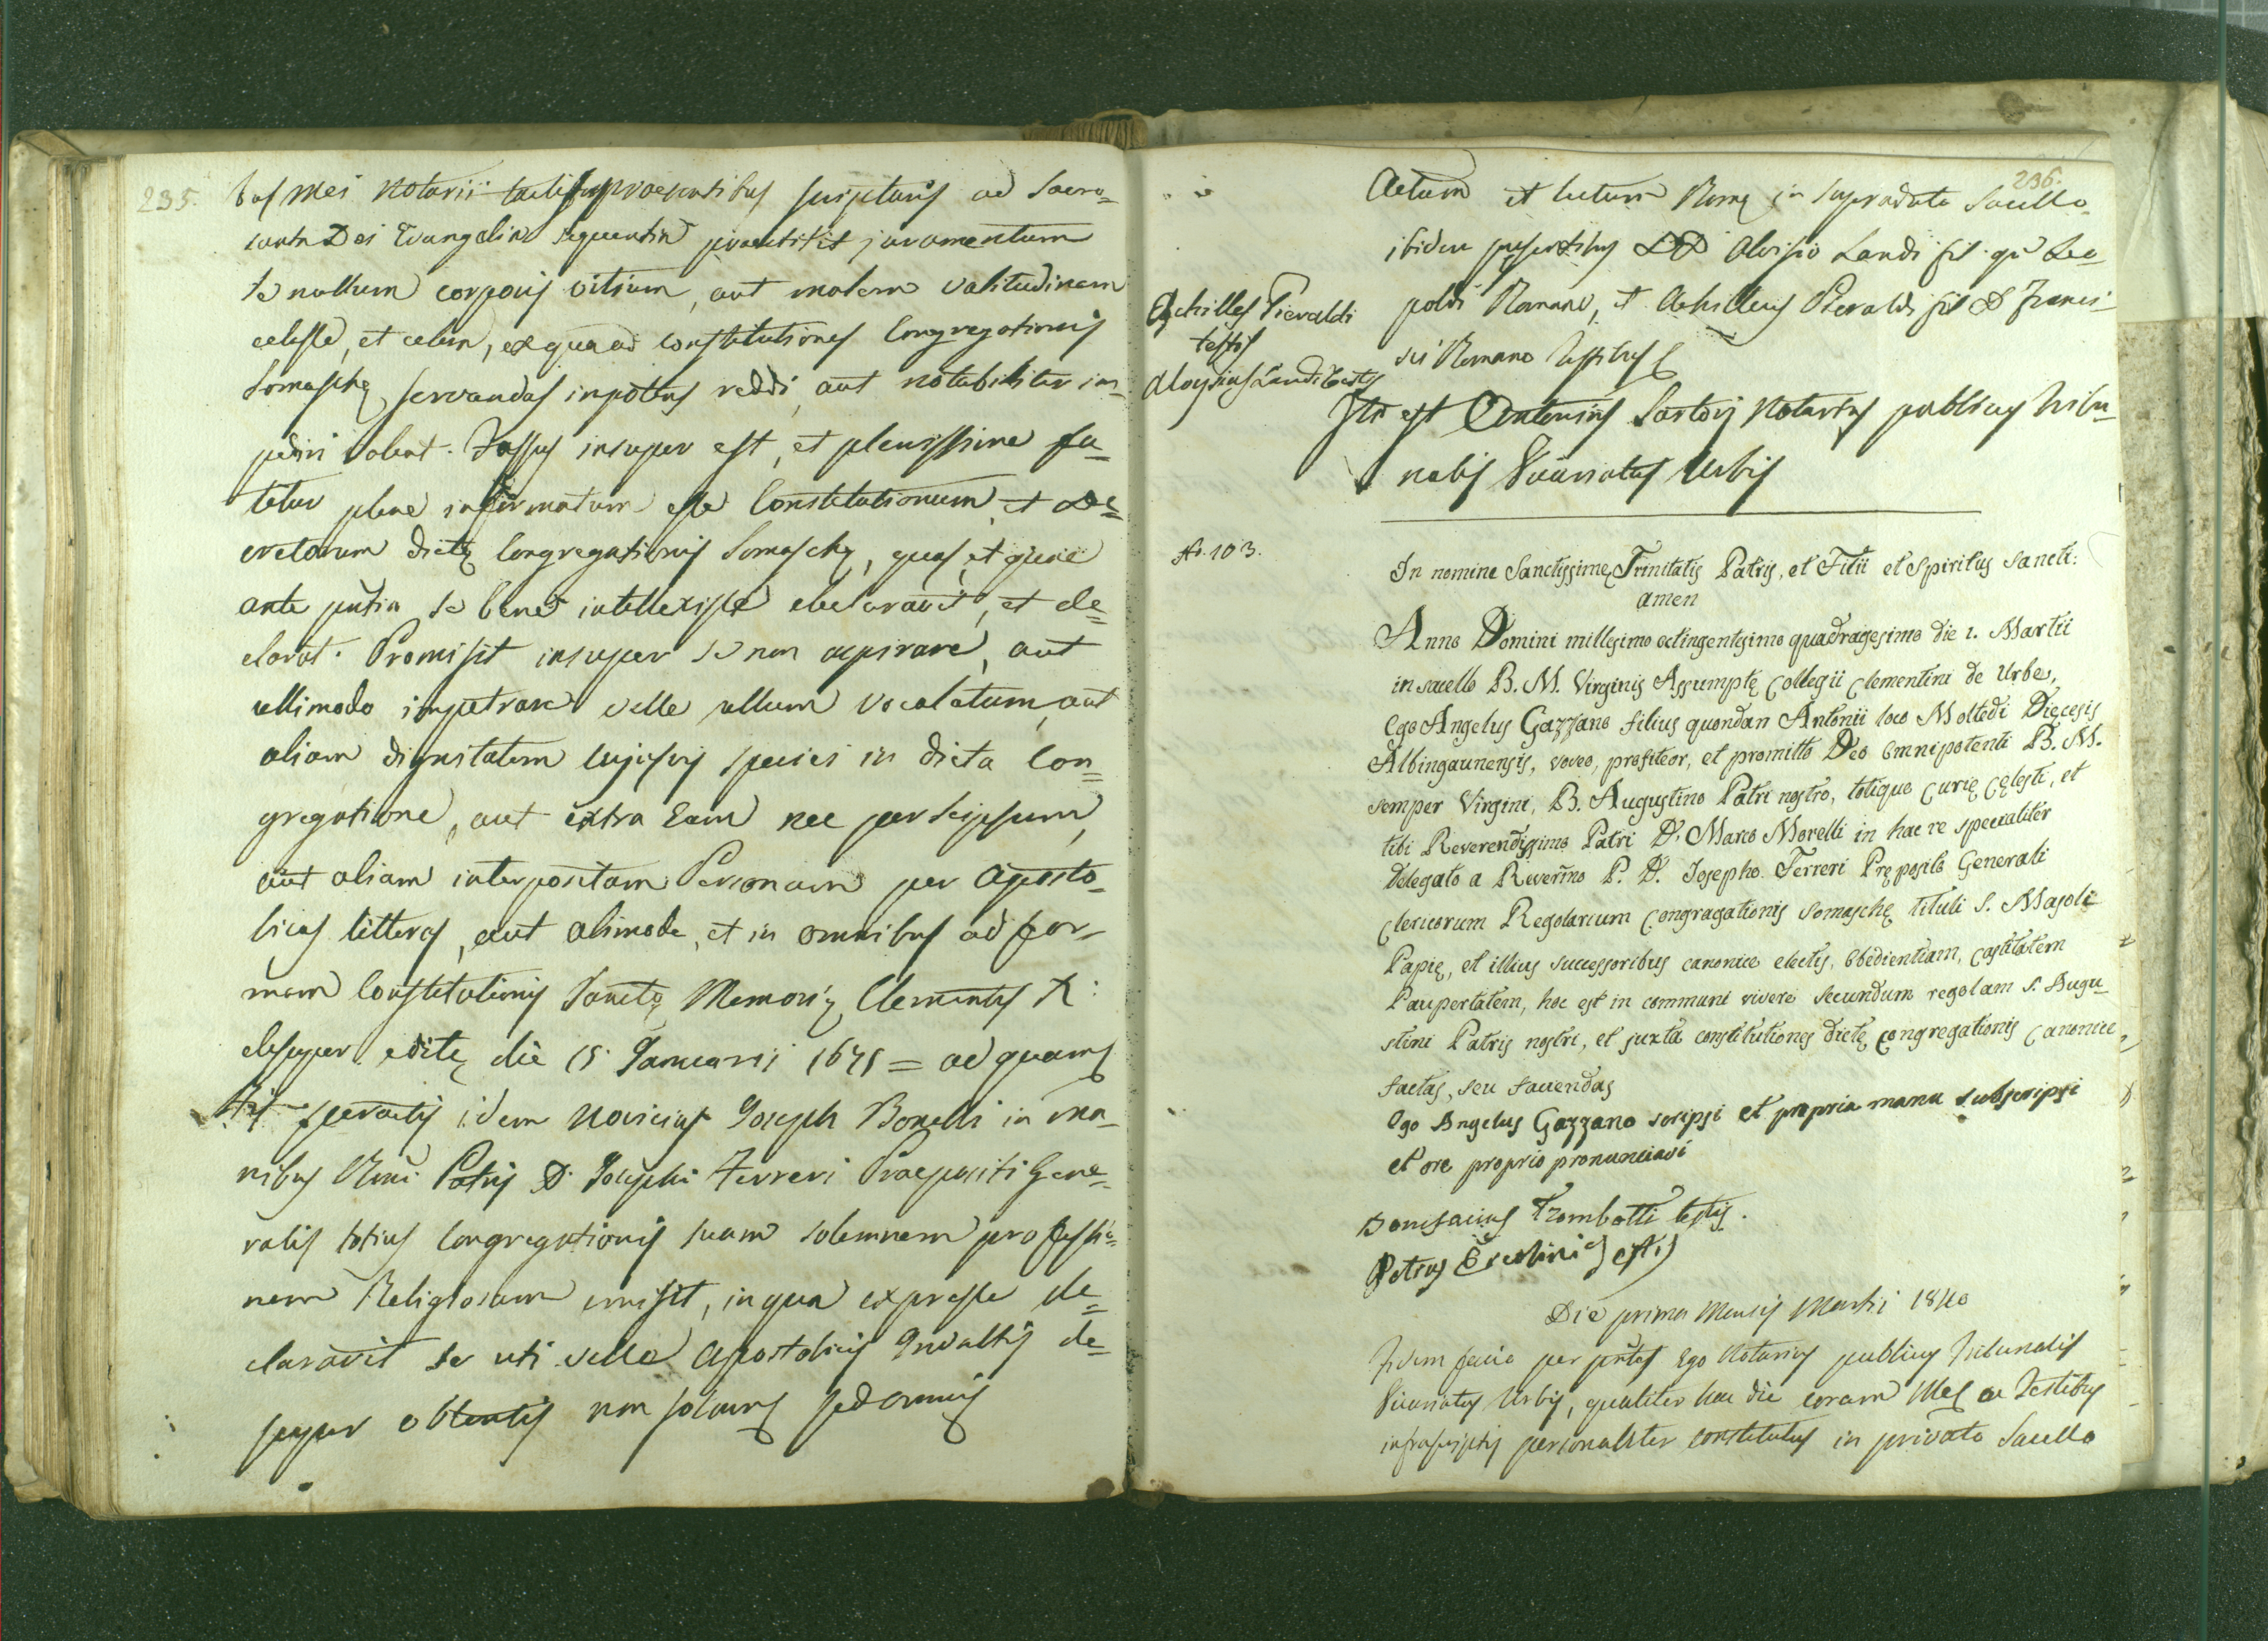 235.
bus mei Notarii tactis praesentibus scripturis ad Sacro=
santa Dei Evangelia sequentia praestitit juramentum
se nullum corporis vitium, aut malam valitudinem
celasse, et celare, ex qua ad constitutiones Congregationis
Somaschę servandas impotens reddi, aut notabiliter im=
pediri valeat. Fassus insuper est, et plenissime fa=
tetur plene informatum esse Constitutionum, et De=
cretorum dictę Congregationis Somaschę, quas, et quae
ante pntia se bene intellexisse declaravit, et de=
clarat. Promisit insuper se non aspirare, aut
ullimodo impetrare velle ullum Vocalatum, aut
aliam dignitatem cujusvis speciei in dicta Con=
gregatione, aut extra Eam nec per seipsum,
aut aliam interpositam Personam per Aposto=
licas litteras, aut alimode, et in omnibus ad for=
mam Constitutionis Sanctę Memorię Clementis X:
desuper editę die 15 Januarii 1675 = ad quam
His peractis idem Novicius Joseph Bonelli in ma=
nibus Rmi Patris D. Josephi Ferreri Praepositi Gene=
ralis totius Congregationis suam solemnem professio=
nem Religiosam emisit, in qua expresse de=
claravit se uti velle Apostolicis Indultis de=
super obtentis non solum sed omnis
236.
Actum et lectum Romę in supradicto Sacello
ibidem presentibus DD Aloisio Landi fil. qm Leo=
poldi Romano, et Achilleus Pieraldi fil D Franci=
sci Romano Testibus
Achilles Pieraldi
testis
Aloysius Landi Testis
Ita est Antonius Sartorij Notarius publicus Tribu=
nalis Vicariatus Urbis
No. 103.
In nomine Sanctissimę Trinitatis Patris, et Filii et Spiritus Sancti:
amen
Anno Domini millesimo octingentesimo quadragesimo die 1. Martii
in sacello B. M. Virginis Assumptę Collegii Clementini de Urbe,
Ego Angelus Gazzano filius quondan Antonii loco Moltedi Diecesis
Albingaunensis, voveo, profiteor, et promitto Deo Omnipotenti B. M.
semper Virgini, B. Augustino Patri nostro, totique Curię Cęlesti, et
tibi Reverendissimo Patri D. Marco Morelli in hac re specialiter
Delegato a Reverm̃o P. D. Josepho Ferreri Pręposito Generali
Clericorum Regolarium Congragationis Somaschę tituli S. Majoli
Papię, et illius successoribus canonice electis, Obedientiam, Castitatem
Paupertatem, hoc est in communi vivere secundum regolam S. Augu=
stini Patris nostri, et juxta constitutiones dictę Congregationis Canonice
factas, seu faciendas
Ego Angelus Gazzano scripsi et propria manu subscripsi
et ore proprio pronunciavi
Bonifacius Trombetti testis.
Petrus
Die prima Mensis Martii 1840
Fidem facio per pntes Ego Notarius publicus Tribunalis
Vicariatus Urbis, qualiter hac die coram Me, ac Testibus
infrascriptis personaliter constitutus in privato Sacello